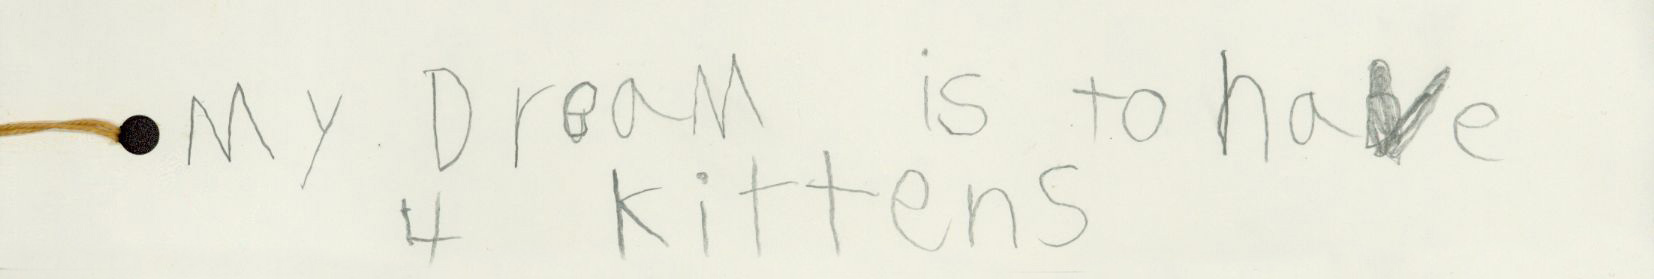 My Dream is to have
4 kittens